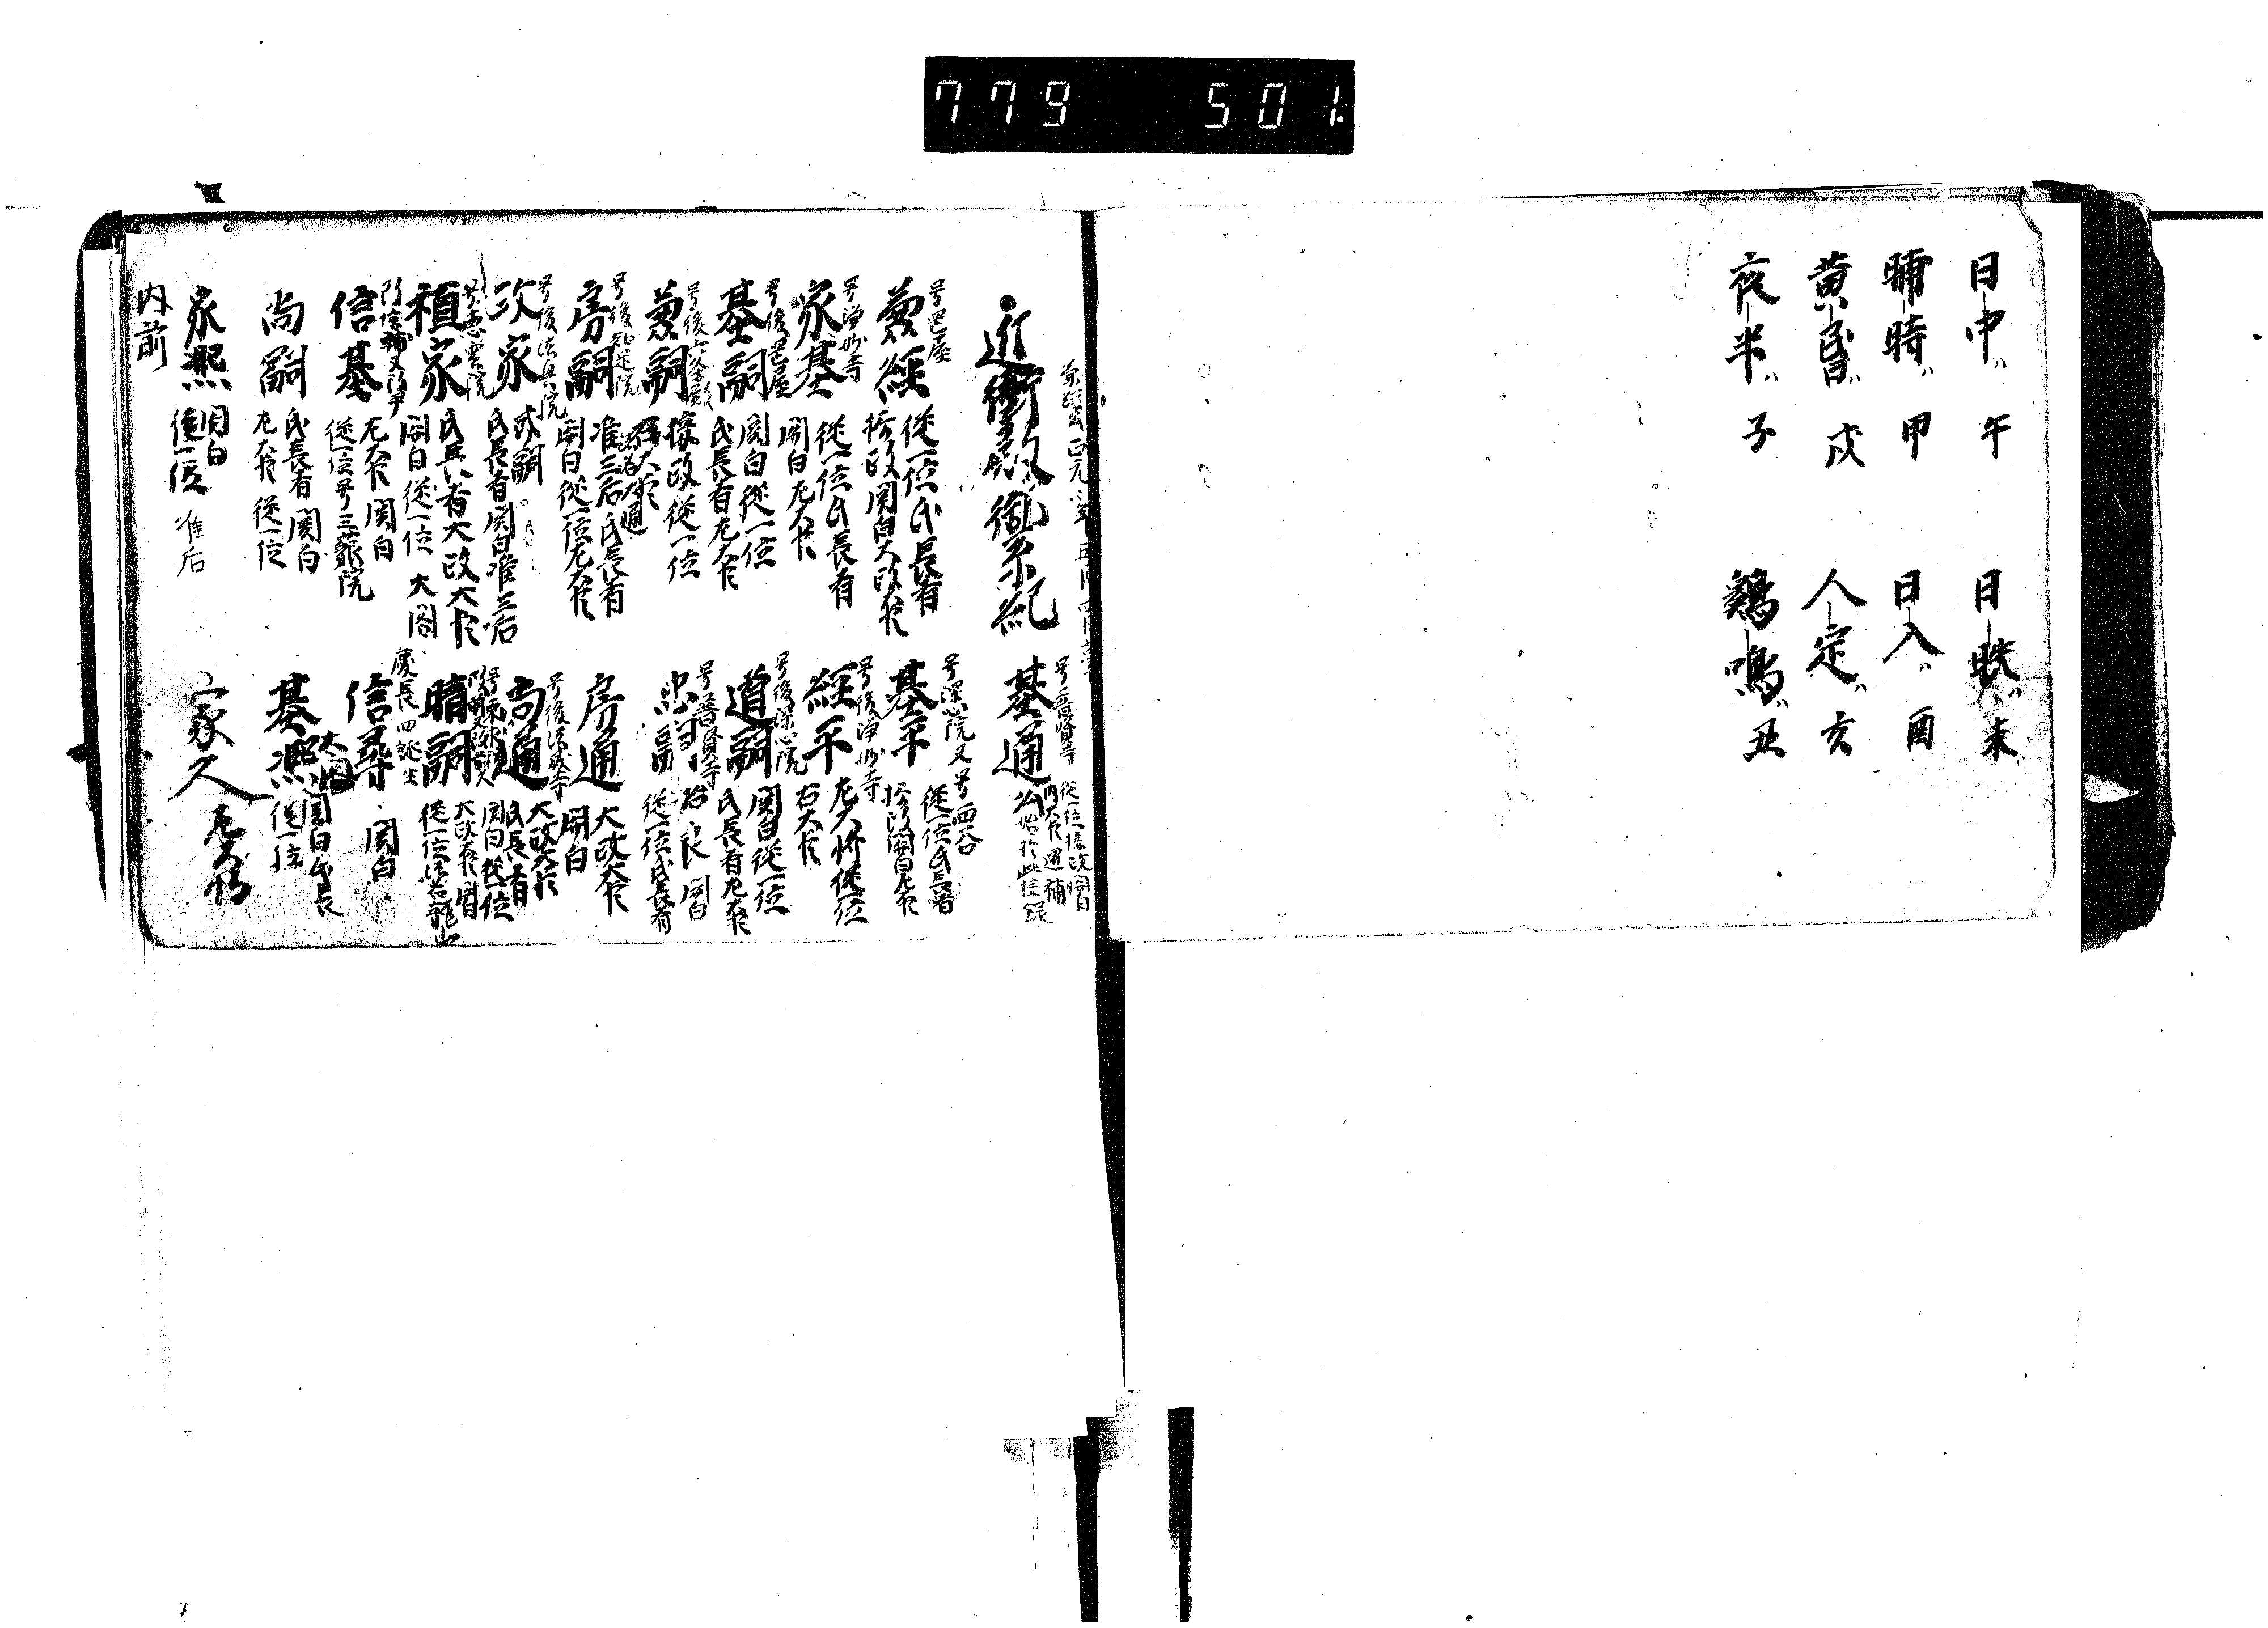 779 501.
日中〃 午 日昳〃 未
晡時〃 申 日入〃 酉
黄昏〃 戌 人定〃 亥
夜半〃 子 鷄鳴〃 丑
近衛殿御系紀
号普賢寺
基通 従一位摂政関白
内大臣
号岡屋
兼経 従一位氏長者
摂政関白大政大臣
号深心院又号西谷
基平 従一位氏長者
摂政関白左大臣
号浄妙寺
家基 従一位氏長者
関白左大臣
号後浄妙寺
経平 左大将従一位
右大臣
号後岡屋
基嗣 関白従一位
氏長者左大臣
号後深心院
道嗣 関白従一位
氏長者左大臣
兼嗣 摂政従一位
右大臣
号普賢寺
忠嗣 関白
従一位氏長者
号後知足院
房嗣 准三后氏長者
関白従一位左大臣
房通 大政大臣
関白
号後法興院
政家 氏長者関白准三后
号後法成寺
尚通 大政大臣
氏長者
関白従一位
号恵雲院
稙家 氏長者大政大臣
関白従一位 大閤
晴嗣 大政大臣関白
従一位
信基 左大臣 関白
従一位号三藐院
信尋 関白
尚嗣 氏長者 関白
左大臣 従一位
基熈 関白氏長
従一位
家熈 関白
従一位 准后
家久 左大将
内前